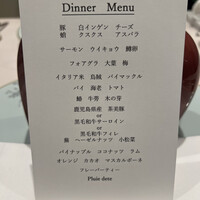 Dinner Menu
豚 白インゲン チーズ
蛸 クスクス アスパラ
サーモン ウイキョウ 鱒卵
フォアグラ 大葉 梅
イタリア米 烏賊 バイマックル
パイ 海老 トマト
鰆 牛蒡 木の芽
鹿児島県産 茶美豚
or
黒毛和牛サーロイン
or
黒毛和牛フィレ
ヘーゼルナッツ 小松菜
パイナップル ココナッツ ラム
オレンジ カカオ マスカルポーネ
フレーバーティー
Pluie dete